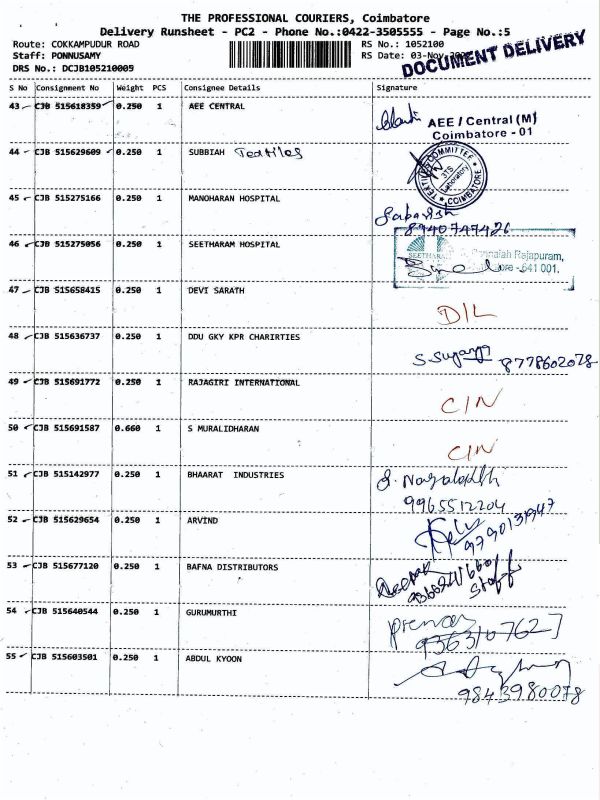 THE PROFESSIONAL COURIERS, Coimbatore
Delivery Runsheet - PC2 - Phone No.:0422-3505555 - Page No.:5
Route: COKKAMPUDUR ROAD RS No.: 1052100
Staff: PONNUSAMY RS Date: 03-Nov
DRS No.: DCJB105210005 DOCUMENT DELIVERY
S No Consignment No Weight PCS Consignee Details Signature
43 CJB 515618359 0.250 1 AEE CENTRAL
AEE / Central (M)
Coimbatore - 01
44 CJB 515629609 0.250 1 SUBBIAH Textiles
COMMITTEE
COIMBATORE
45 CJB 515275166 0.250 1 MANOHARAN HOSPITAL
8940747426
46 CJB 515275056 0.250 1 SEETHARAM HOSPITAL
Rajapuram,
641 001.
47 CJB 515658415 0.250 1 DEVI SARATH
D/L
48 CJB 515636737 0.250 1 DDU GKY KPR CHARIRTIES
8778602078
49 CJB 515691772 0.250 1 RAJAGIRI INTERNATIONAL
C/N
50 CJB 515691587 0.660 1 S MURALIDHARAN
C/N
51 CJB 515142977 0.250 1 BHAARAT INDUSTRIES
9965512204
52 CJB 515629654 0.250 1 ARVIND
53 CJB 515677120 0.250 1 BAFNA DISTRIBUTORS
Staff
54 CJB 515640544 0.250 1 GURUMURTHI
55 CJB 515603501 0.250 1 ABDUL KYOON
9843980078